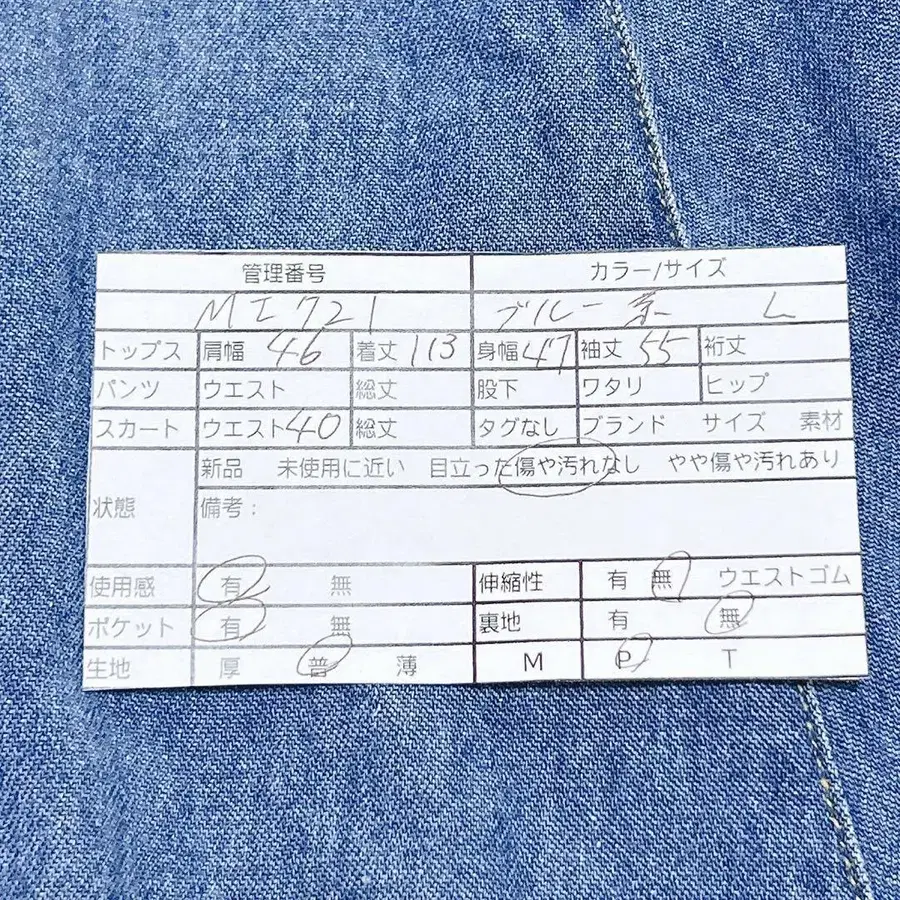 管理番号 カラー/サイズ
MI721 ブルー系 L
トップス 肩幅 46 着丈 113 身幅 47 袖丈 55 裄丈
パンツ ウエスト 総丈 股下 ワタリ ヒップ
スカート ウエスト 40 総丈 タグなし ブランド サイズ 素材
状態 新品 未使用に近い 目立った傷や汚れなし やや傷や汚れあり
備考：
使用感 有 無 伸縮性 有 無 ウエストゴム
ポケット 有 無 裏地 有 無
生地 厚 普 薄 M P T